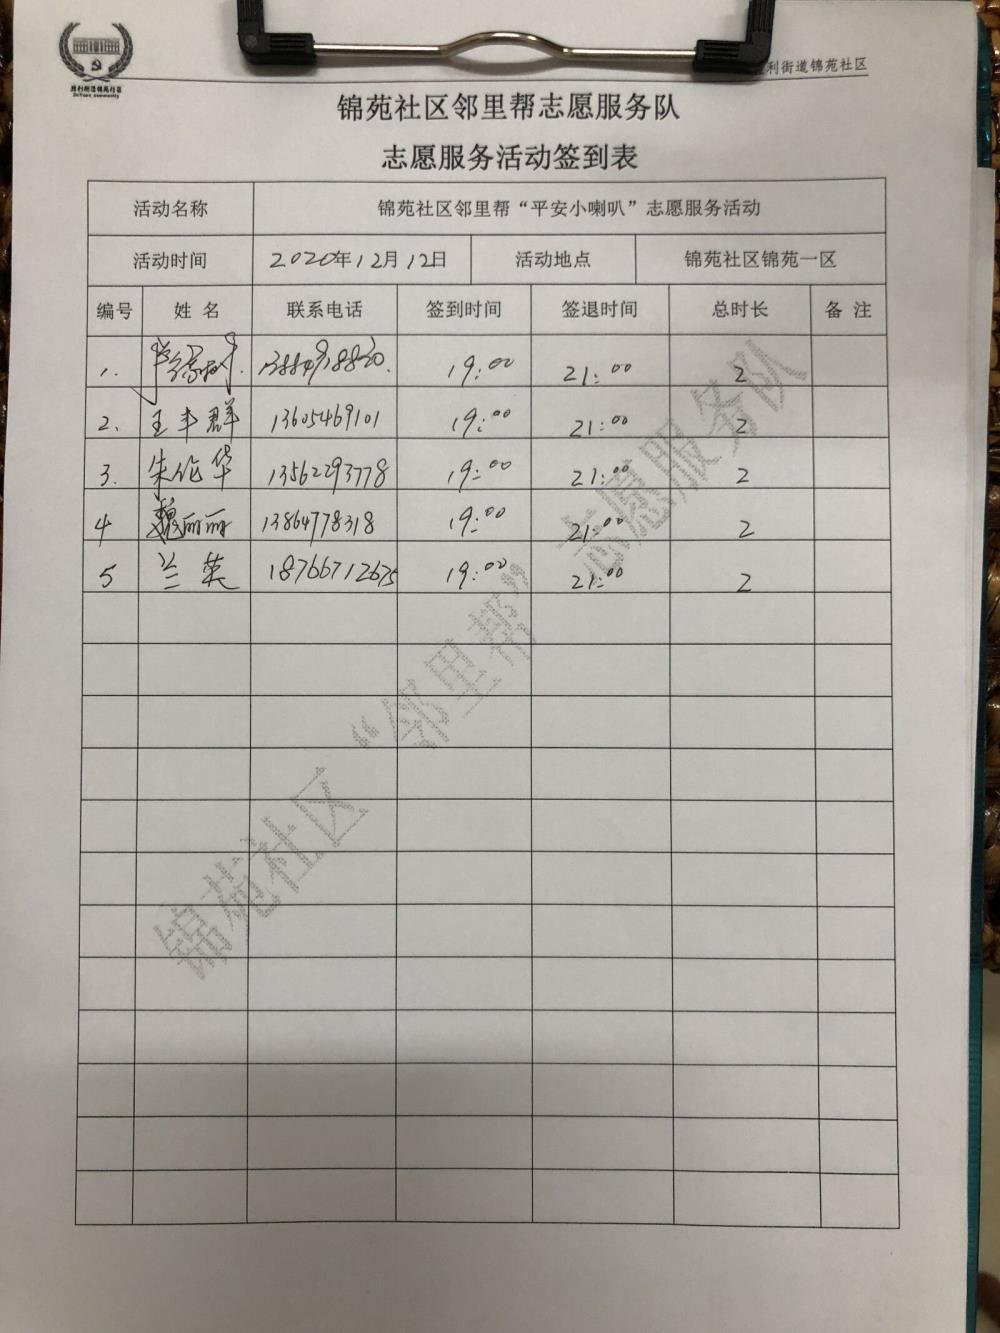 胜利街道锦苑社区
利街道锦苑社区
锦苑社区邻里帮志愿服务队
志愿服务活动签到表
活动名称 锦苑社区邻里帮“平安小喇叭”志愿服务活动
活动时间 2020年12月12日 活动地点 锦苑社区锦苑一区
编号 姓名 联系电话 签到时间 签退时间 总时长 备注
1. 19:00 21:00 2
2. 王丰群 13605469101 19:00 21:00 2
3. 朱伦华 13562293778 19:00 21:00 2
4 魏丽丽 13864778318 19:00 21:00 2
5 兰英 18766712675 19:00 21:00 2
锦苑社区“邻里帮”志愿服务队